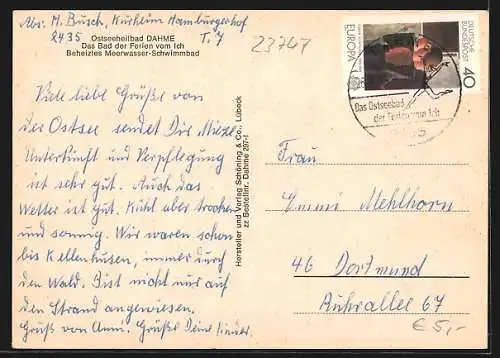 Abs: M. Busch, Kurheim Hamburgerhof
2435 T. 7
Ostseeheilbad DAHME
Das Bad der Ferien vom Ich
Beheiztes Meerwasser-Schwimmbad
23747
Viele liebe Grüße von
der Ostsee sendet Dir Mieze
Unterkunft und Verpflegung
ist sehr gut. Auch das
Wetter ist gut. Kühl aber trocken
und sonnig. Wir waren schon
bis Kellenhusen, immer durch
den Wald. Bist nicht nur auf
den Strand angewiesen.
Gruß von Anni. Grüße Deine Lieder.
Hersteller und Verlag Schöning & Co., Lübeck
zz Bestellnr. Dahme 297-1
EUROPA
DEUTSCHE BUNDESPOST
40
Das Ostseebad
der Ferien vom Ich
Frau
Emmi Mehlhorn
46 Dortmund
Ruhrallee 67
€ 5,-